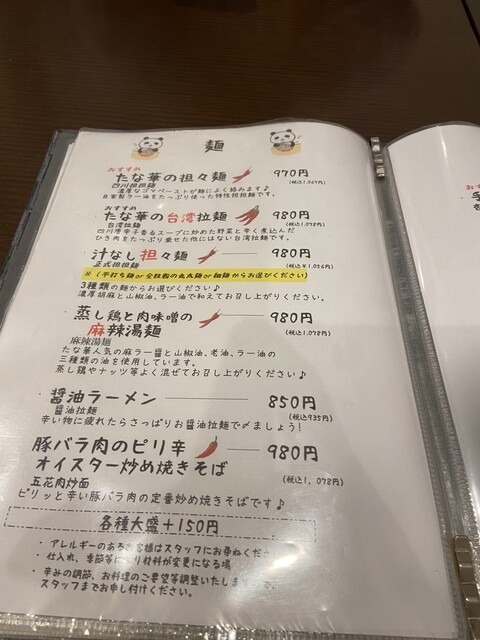 麺
おすすめ
たな華の担々麺 970円
四川担担麺 (税込1,067円)
濃厚なゴマペーストが麺によく絡みます♪
自家製ラー油をたっぷり使った特性担担麺です。
おすすめ
たな華の台湾拉麺 980円
台湾拉麺 (税込1,078円)
四川唐辛子香るスープに炒めた野菜と辛く煮込んだ
ひき肉をたっぷり乗せた他にはない台湾拉麺です。
汁なし担々麺 980円
正式担担麺
※(平打ち麺or全粒粉の丸太麺or細麺からお選びください)
3種類の麺からお選びください♪
濃厚胡麻と山椒油、ラー油で和えてお召し上がりください。
蒸し鶏と肉味噌の 980円
麻辣湯麺 (税込1,078円)
麻辣湯麺
たな華人気の麻ラー醤と山椒油、老油、ラー油の
三種類の油を使用しています。
蒸し鶏やナッツ等よく混ぜてお召し上がりください♪
醤油ラーメン 850円
醤油拉麺 (税込935円)
辛い物に疲れたらさっぱりお醤油拉麺で〆ましょう!
豚バラ肉のピリ辛 980円
オイスター炒め焼きそば (税込1,078円)
五花肉炒面
ピリッと辛い豚バラ肉の定番炒め焼きそばです♪
各種大盛+150円
・アレルギーのあるお客様はスタッフにお尋ねくださ
・仕入れ、季節等により材料が変更になる場
・辛みの調節、お料理のご要望等調整いたしますので
スタッフまでお申し付けください。